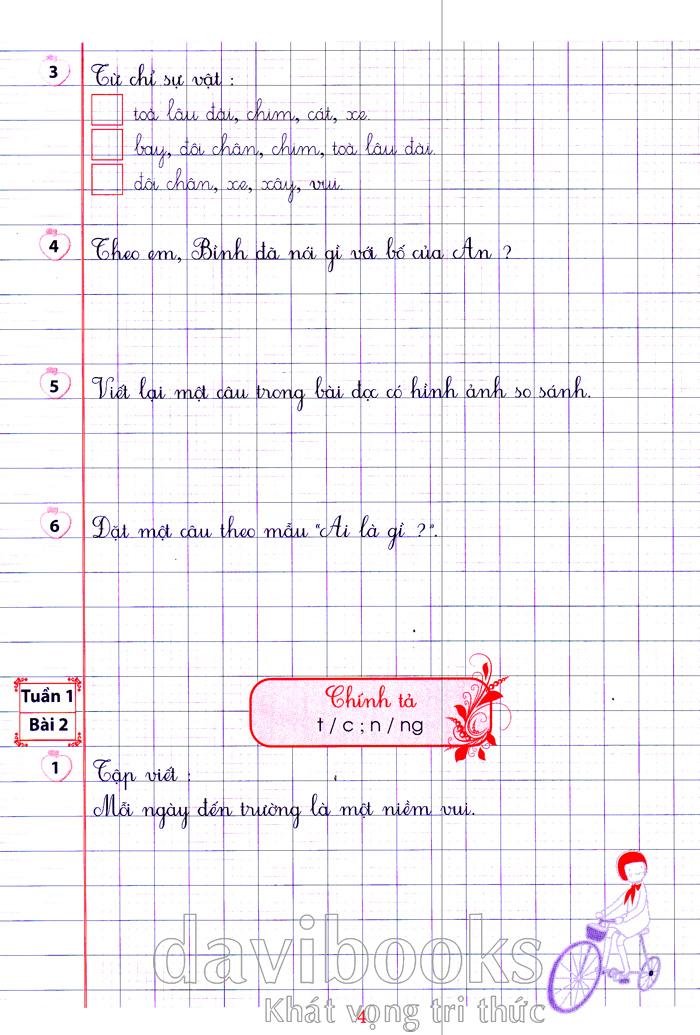 3 Từ chỉ sự vật :
toà lâu đài, chim, cát, xe.
bay, đôi chân, chim, toà lâu đài.
đôi chân, xe, xây, vui.
4 Theo em, Bình đã nói gì với bố của An ?
5 Viết lại một câu trong bài đọc có hình ảnh so sánh.
6 Đặt một câu theo mẫu "Ai là gì ?".
Tuần 1
Bài 2
Chính tả
t / c ; n / ng
1 Tập viết :
Mỗi ngày đến trường là một niềm vui.
davibooks
Khát vọng tri thức
4